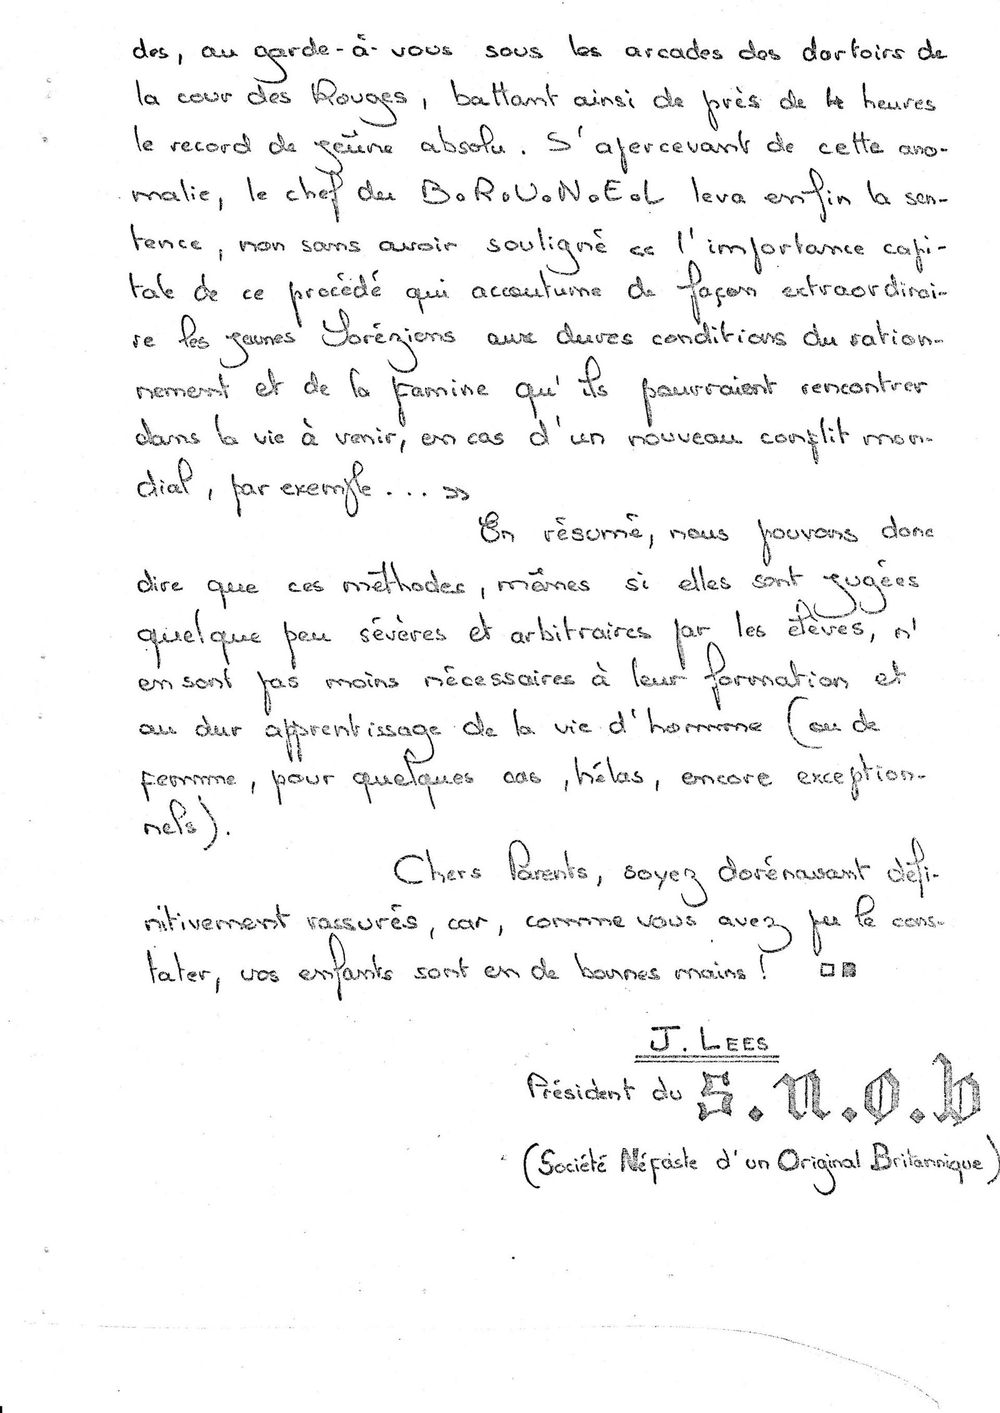 des, au garde-à-vous sous les arcades des dortoirs de
la cour des Rouges, battant ainsi de près de 4 heures
le record de jeûne absolu. S'apercevant de cette ano-
malie, le chef du B.R.U.N.E.L leva enfin la sen-
tence, non sans avoir souligné « l'importance capi-
tale de ce procédé qui accoutume de façon extraordinai-
re les jeunes Soréziens aux dures conditions du ration-
nement et de la famine qu'ils pourraient rencontrer
dans la vie à venir, en cas d'un nouveau conflit mon-
dial, par exemple... »
En résumé, nous pouvons donc
dire que ces méthodes, mêmes si elles sont jugées
quelque peu sévères et arbitraires par les élèves, n'
en sont pas moins nécessaires à leur formation et
au dur apprentissage de la vie d'homme (ou de
femme, pour quelques cas, hélas, encore exception-
nels).
Chers Parents, soyez dorénavant défi-
nitivement rassurés, car, comme vous avez pu le cons-
tater, vos enfants sont en de bonnes mains !
J. LEES
Président du S.n.o.b
(Société Néfaste d'un Original Britannique)